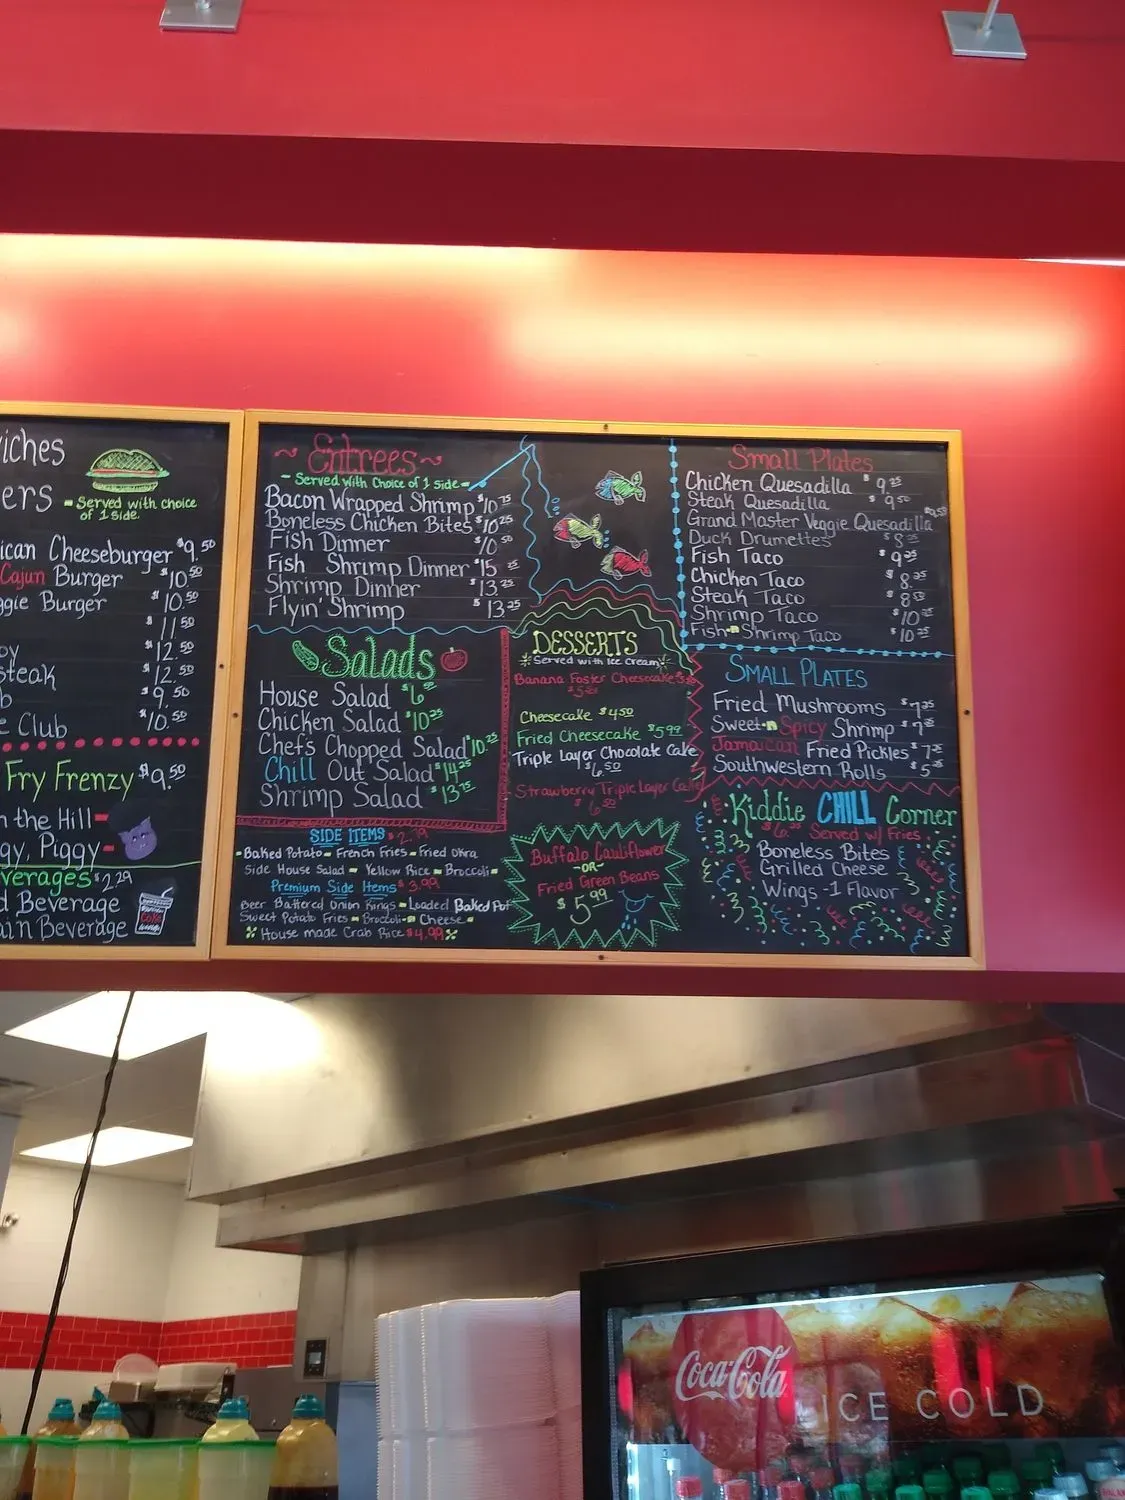 iches
ers
- Served with choice
of 1 side.
ican Cheeseburger $9.50
Cajun Burger $10.50
ggie Burger $10.50
$11.50
oy $12.50
steak $12.50
b $9.50
e Club $10.50
Fry Frenzy $9.50
n the Hill -
gy, Piggy -
verages $2.29
d Beverage
ain Beverage
Coke
~ Entrees ~
- Served with Choice of 1 side -
Bacon Wrapped Shrimp $10.75
Boneless Chicken Bites $10.25
Fish Dinner $10.50
Fish Shrimp Dinner $15
Shrimp Dinner $13.25
Flyin' Shrimp $13.25
Salads
House Salad $6
Chicken Salad $10.25
Chef's Chopped Salad $10.25
Chill Out Salad $14.25
Shrimp Salad $13.75
SIDE ITEMS $2.79
- Baked Potato - French Fries - Fried Okra
Side House Salad - Yellow Rice - Broccoli -
Premium Side Items $3.99
Beer Battered Onion Rings - Loaded Baked Pot
Sweet Potato Fries - Broccoli - Cheese -
House made Crab Rice $4.99
DESSERTS
Served with Ice Cream
Banana Foster Cheesecake
Cheesecake $4.50
Fried Cheesecake $5.99
Triple Layer Chocolate Cake
$6.50
Strawberry Triple Layer Cake
$6.50
Buffalo Cauliflower
-OR-
Fried Green Beans
$5.99
Small Plates
Chicken Quesadilla $9.25
Steak Quesadilla $9.50
Grand Master Veggie Quesadilla $9.50
Duck Drumettes $8
Fish Taco $9.25
Chicken Taco $8.25
Steak Taco $8.50
Shrimp Taco $10.25
Fish - Shrimp Taco $10.25
SMALL PLATES
Fried Mushrooms $7.25
Sweet - n Spicy Shrimp $7
Jamaican Fried Pickles $7.25
Southwestern Rolls $5
Kiddie CHILL Corner
$6.25 Served w/ Fries
Boneless Bites
Grilled Cheese
Wings - 1 Flavor
Coca-Cola
ICE COLD